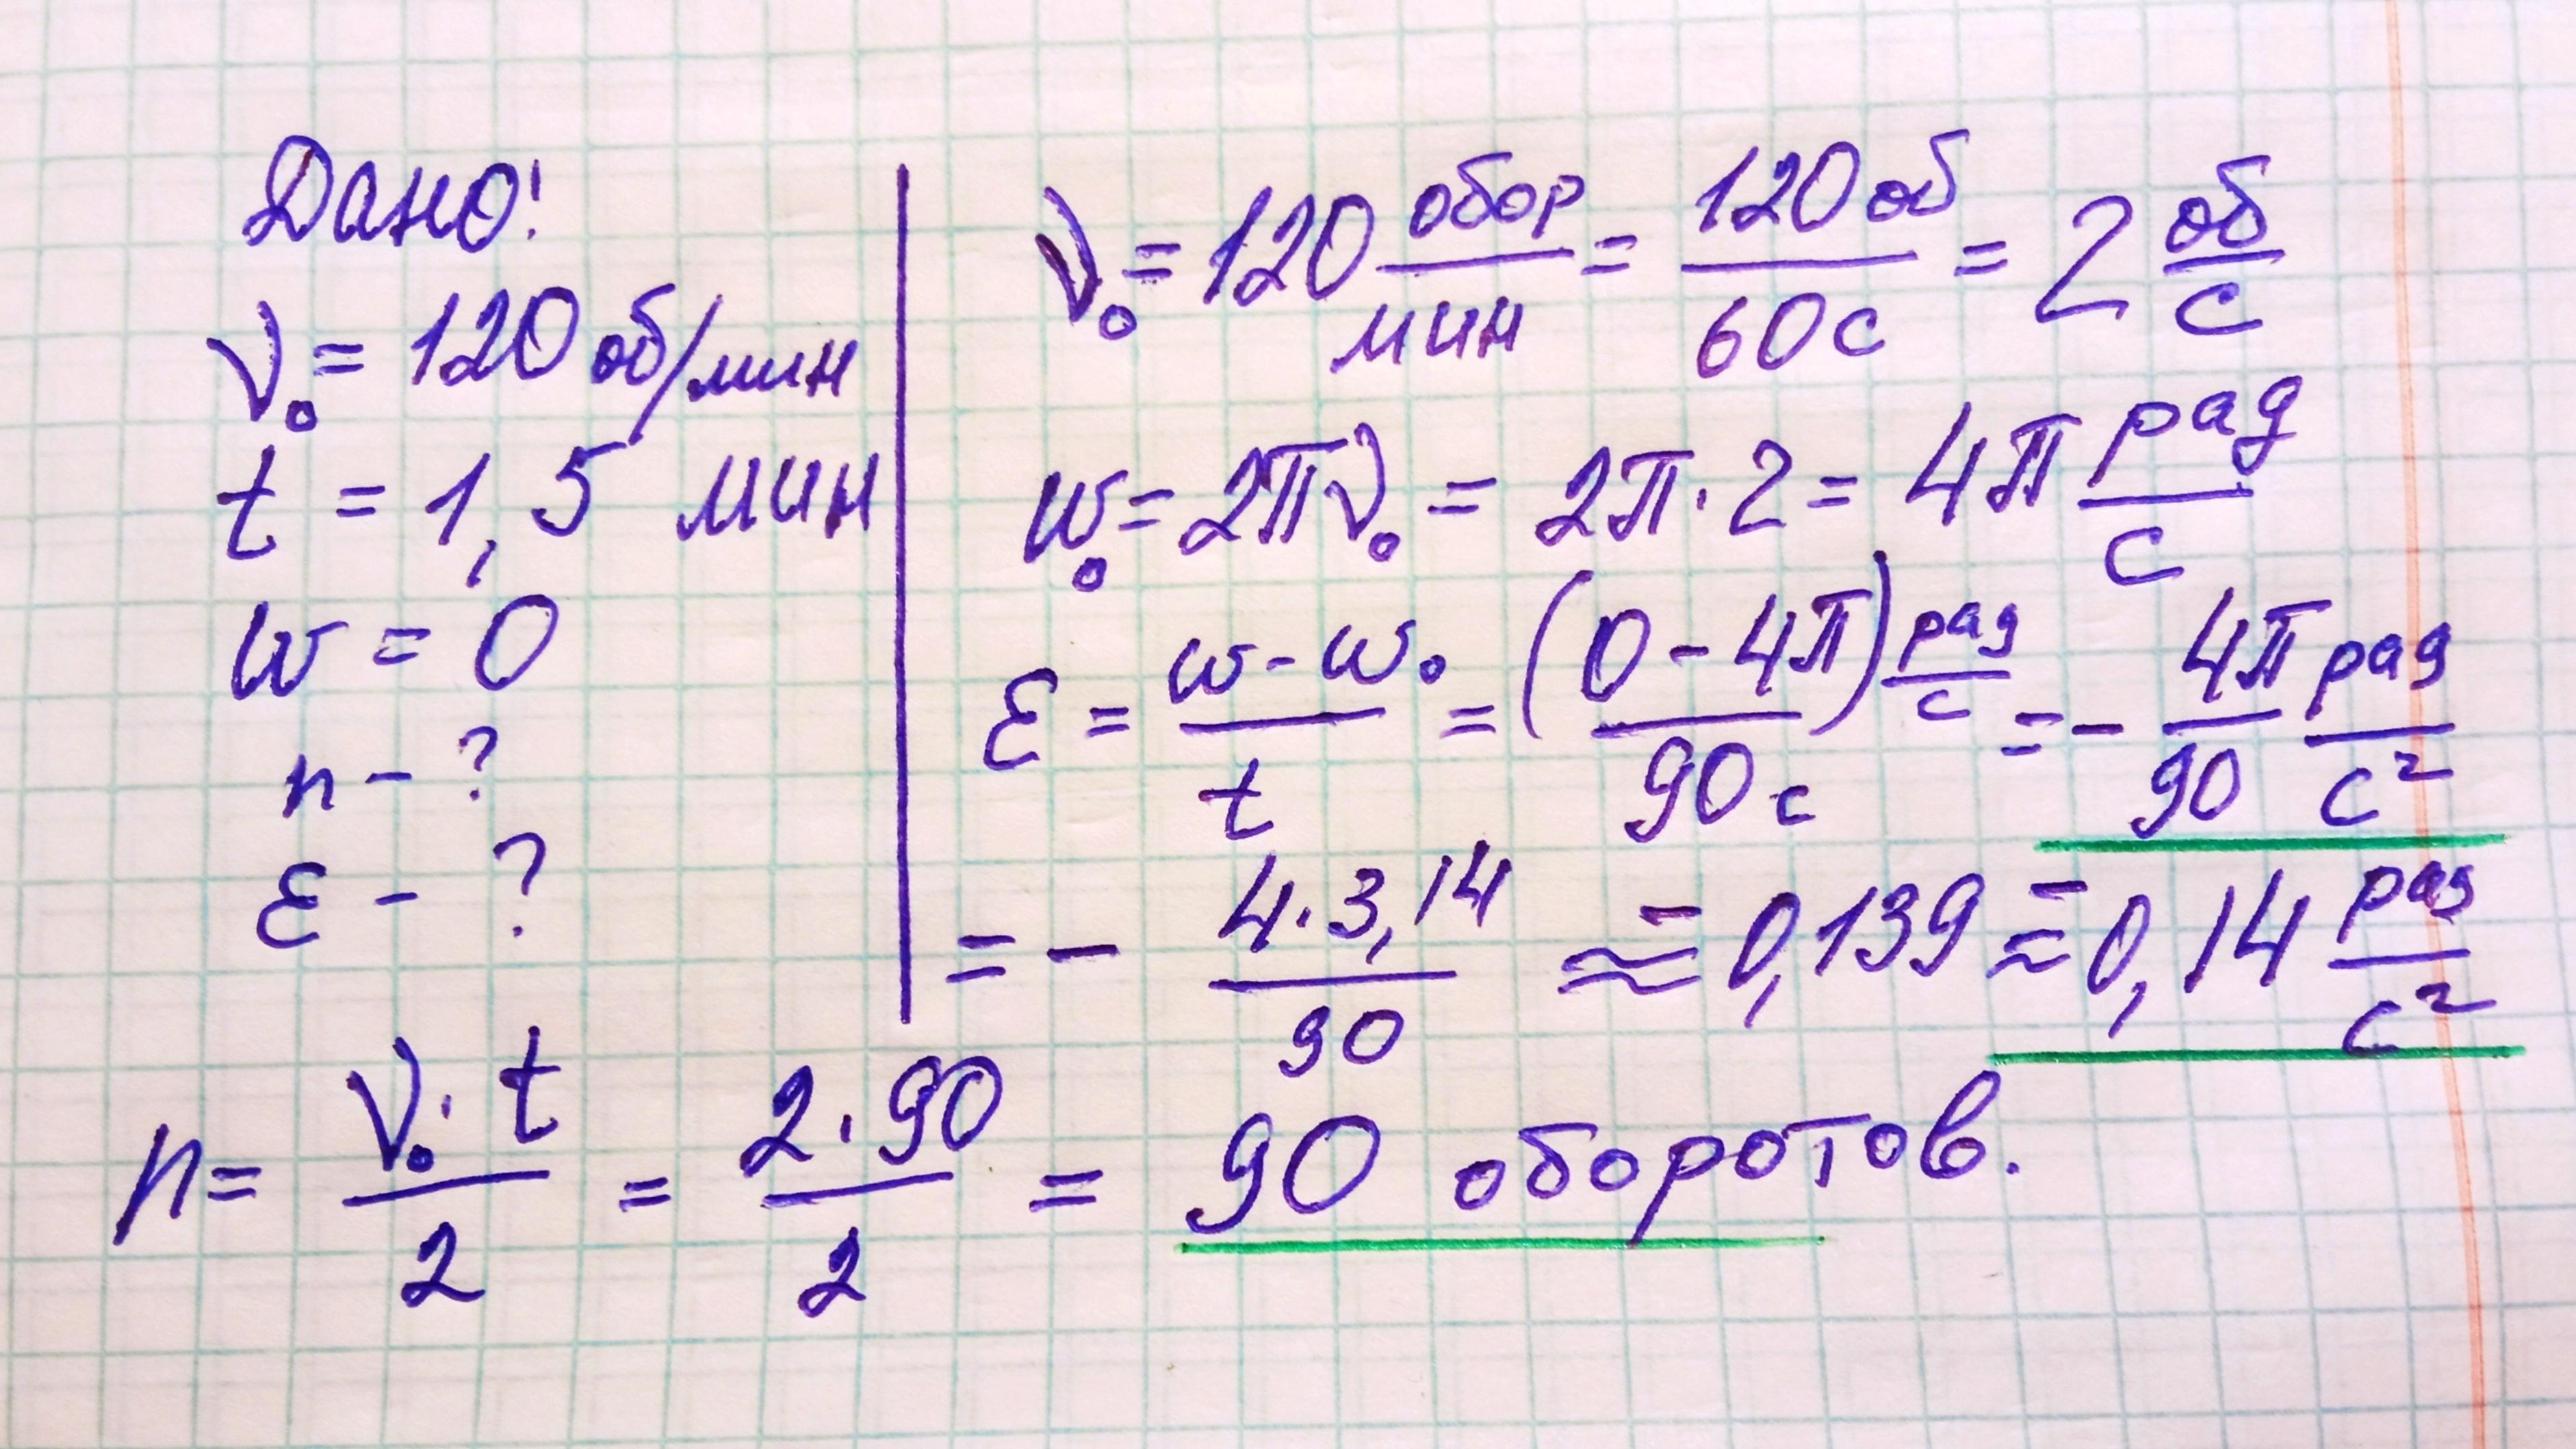 Дано!
ν₀ = 120 об/мин
t = 1,5 мин
w = 0
n - ?
ε - ?
ν₀ = 120 обор/мин = 120 об/60 с = 2 об/с
w₀ = 2πν₀ = 2π · 2 = 4π рад/с
ε = (w - w₀)/t = (0 - 4π) рад/с / 90 с = - 4π/90 рад/с²
= - 4·3,14/90 ≈ -0,139 ≈ -0,14 рад/с²
n = ν₀ · t/2 = 2 · 90/2 = 90 оборотов.